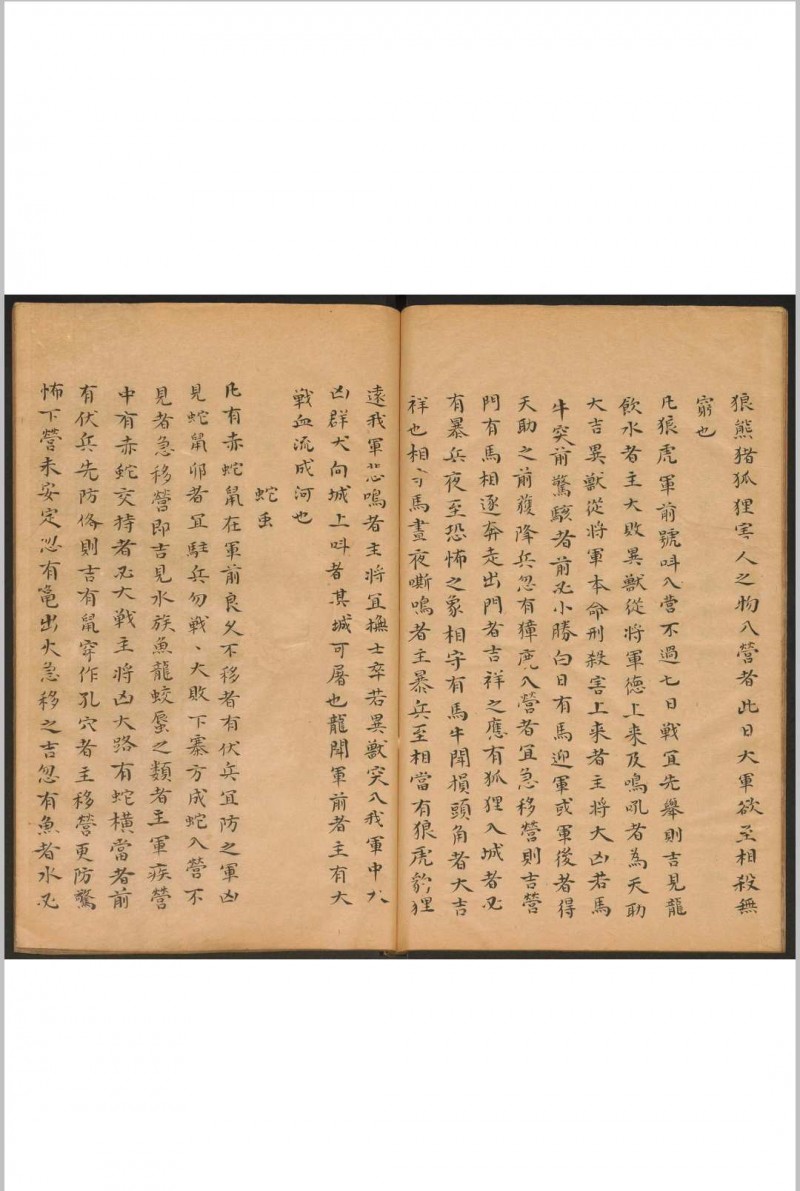 狼熊猪狐狸害人之物入營者此日大軍欲至相殺無
窮也
凡狼虎軍前號呌入營不過七日戰宜先舉則吉見龍
飲水者主大敗異獸從將軍德上来及鳴吼者為天助
大吉異獸從將軍本命刑殺害上来者主將大凶若馬
牛突前驚駭者前必小勝白日有馬迎軍或軍後者得
天助之前獲降兵忽有獐鹿入營者宜急移營則吉營
門有馬相逐奔走出門者吉祥之應有狐狸入城者必
有暴兵夜至恐怖之象相守有馬牛鬪損頭角者大吉
祥也相守馬晝夜嘶鳴者主暴兵至相當有狼虎豹狸
遠我軍悲鳴者主將宜撫士卒若異獸突入我軍中大
凶群犬向城上呌者其城可屠也龍鬪軍前者主有大
戰血流成河也
蛇虫
凡有赤蛇鼠在軍前良久不移者有伏兵宜防之軍凶
見蛇鼠卯者宜駐兵勿戰、大敗下寨方成蛇入營不
見者急移營即吉見水族魚龍蛟蜃之類者主軍疾營
中有赤蛇交持者必大戰主將凶大路有蛇橫當者前
有伏兵先防俻則吉有鼠穿作孔穴者主移營更防驚
怖下營未安定忽有黿出火急移之吉忽有魚者水必